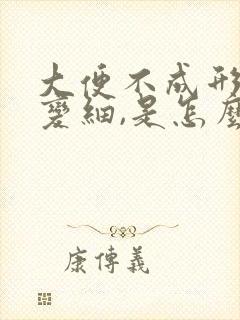 大便不成形
變細,是怎麼
康傳義